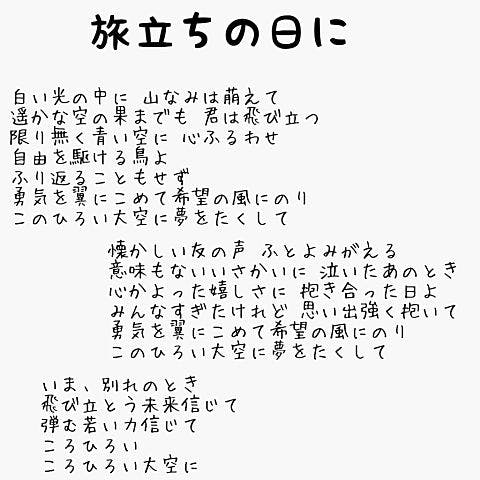 旅立ちの日に
白い光の中に 山なみは萌えて
遥かな空の果までも 君は飛び立つ
限り無く青い空に 心ふるわせ
自由を駆ける鳥よ
ふり返ることもせず
勇気を翼にこめて希望の風にのり
このひろい大空に夢をたくして
懐かしい友の声 ふとよみがえる
意味もないいさかいに 泣いたあのとき
心かよった嬉しさに 抱き合った日よ
みんなすぎたけれど 思い出強く抱いて
勇気を翼にこめて希望の風にのり
このひろい大空に夢をたくして
いま、別れのとき
飛び立とう未来信じて
弾む若い力信じて
ころひろい
ころひろい大空に